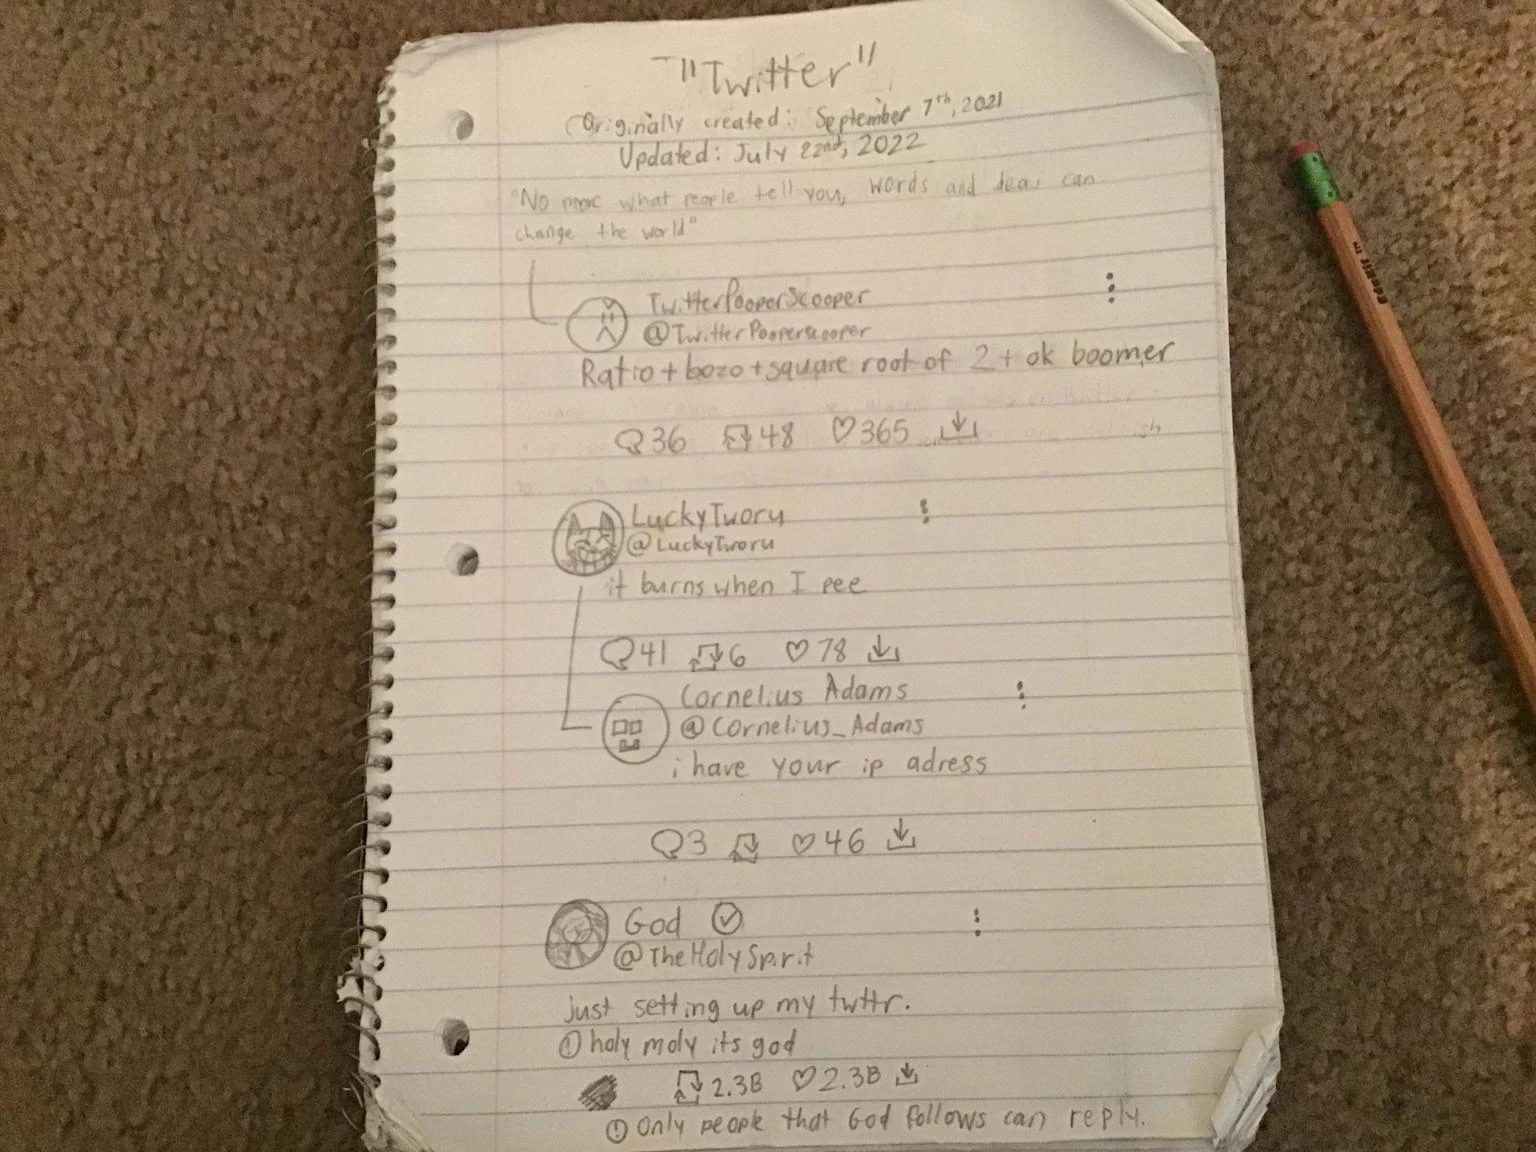 "Twitter"
Originally created: September 7th, 2021
Updated: July 22nd, 2022
"No more what people tell you, words and ideas can
change the world"
TwitterPooperScooper
@TwitterPooperscooper
Ratio+bozo+square root of 2+ok boomer
36 48 365
LuckyTworu
@LuckyTworu
it burns when I pee
41 6 78
Cornelius Adams
@Cornelius_Adams
i have your ip adress
3 46
God
@TheHolySpirit
just setting up my twttr.
! holy moly its god
2.3B 2.3B
! Only people that God follows can reply.